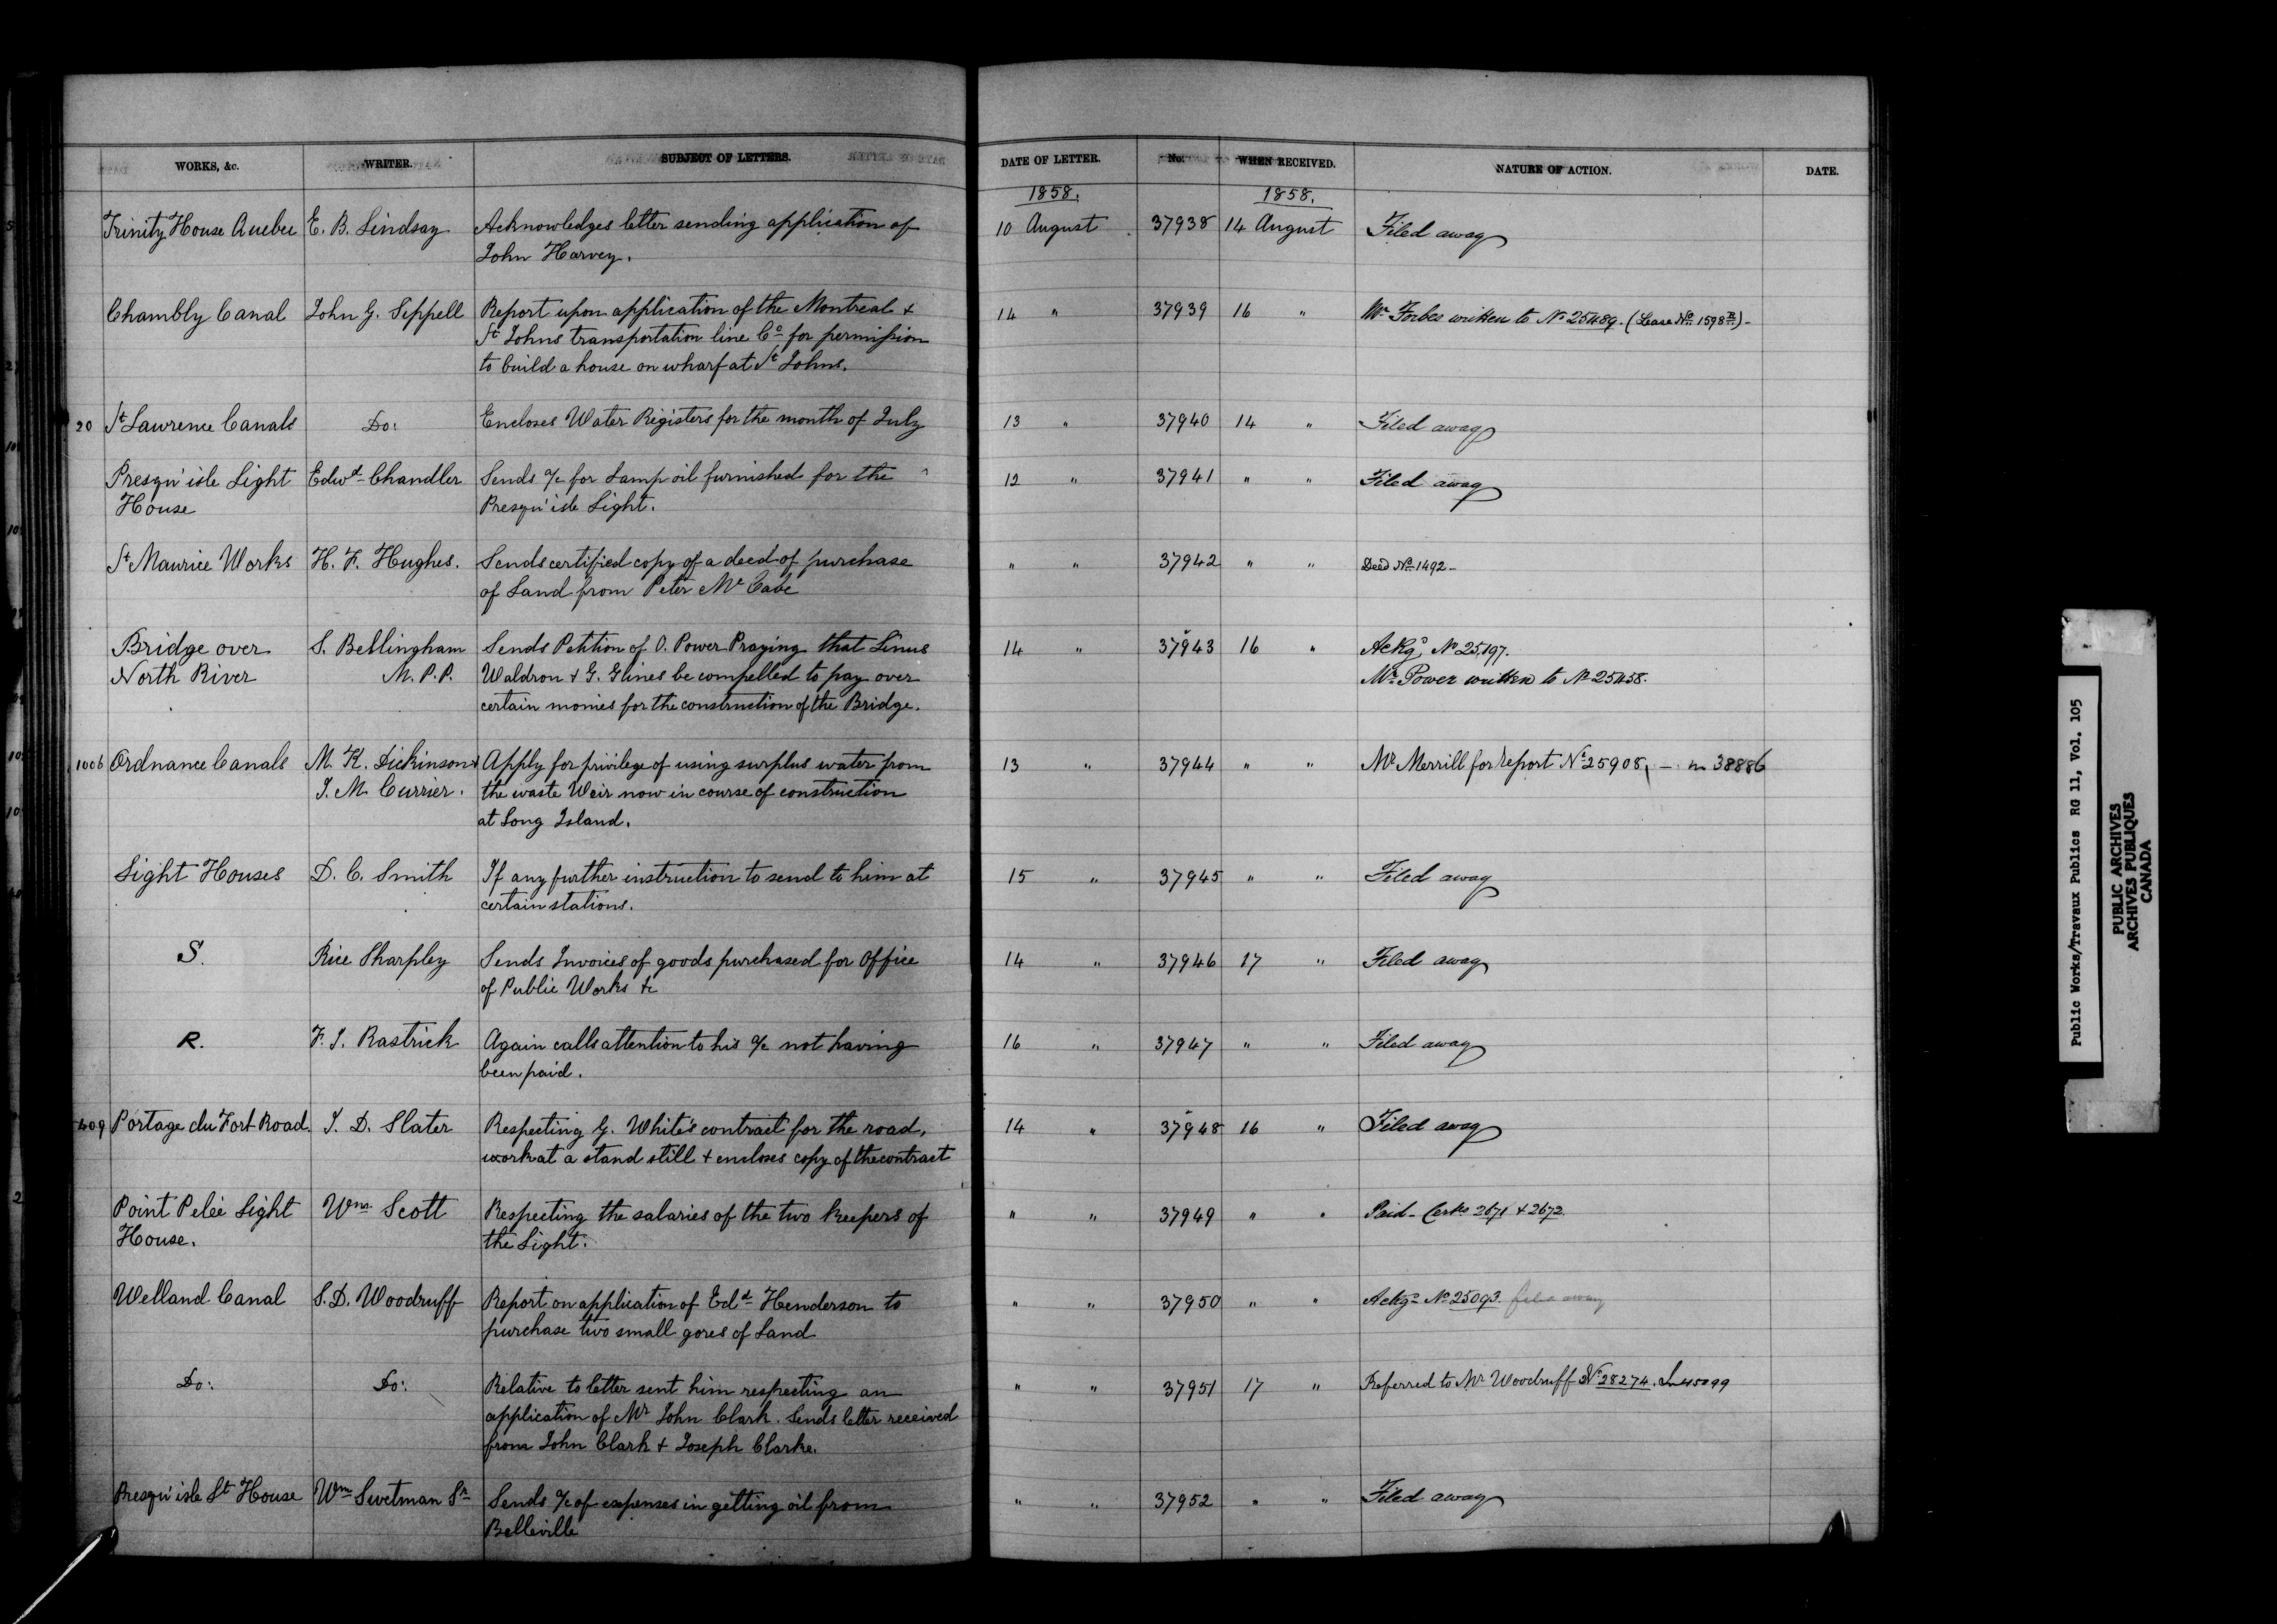 WORKS, &c. WRITER. SUBJECT OF LETTERS. DATE OF LETTER. No. WHEN RECEIVED. NATURE OF ACTION. DATE.
1858. 1858.
Trinity House Quebec E. B. Lindsay Acknowledges letter sending application of 10 August 37938 14 August Filed away
John Harvey.
Chambly Canal John G. Sippell Report upon application of the Montreal & 14 " 37939 16 " Mr Forbes written to No 25489. (Lease No 1598 B) -
St Johns transportation line Co for permission
to build a house on wharf at St Johns.
20 St Lawrence Canals Do: Encloses Water Registers for the month of July 13 " 37940 14 " Filed away
Presqu'isle Light Edwd Chandler Sends a/c for Lamp oil furnished for the 12 " 37941 " " Filed away
House Presqu'isle Light.
St Maurice Works H. F. Hughes. Sends certified copy of a deed of purchase " " 37942 " " Deed No 1492 -
of Land from Peter McCabe
Bridge over S. Bellingham Sends Petition of O. Power Praying that Linus 14 " 37943 16 " Ackgd No 25197.
North River M.P.P. Waldron & G. Glines be compelled to pay over Mr Power written to No 25458.
certain monies for the construction of the Bridge.
1006 Ordnance Canals M. K. Dickinson & Apply for privilege of using surplus water from 13 " 37944 " " Mr Merrill for report No 25908, - in 38886
J. M. Currier. the waste Weir now in course of construction
at Long Island.
Light Houses D. C. Smith If any further instruction to send to him at 15 " 37945 " " Filed away
certain stations.
S. Rice Sharpley Sends Invoices of goods purchased for Office 14 " 37946 17 " Filed away
of Public Works &c
R. F. J. Rastrick Again calls attention to his a/c not having 16 " 37947 " " Filed away
been paid.
409 Portage du Fort Road. J. D. Slater Respecting G. White's contract for the road, 14 " 37948 16 " Filed away
work at a stand still & encloses copy of the contract
Point Pelée Light Wm Scott Respecting the salaries of the two keepers of " " 37949 " " Paid - Certs 2671 & 2672
House. the Light.
Welland Canal S. D. Woodruff Report on application of Edd Henderson to " " 37950 " " Ackgd No 25093. filed away
purchase two small gores of Land
Do: Do: Relative to letter sent him respecting an " " 37951 17 " Referred to Mr Woodruff No 28274. In 45099
application of Mr John Clark. Sends letter received
from John Clark & Joseph Clarke.
Presqu'isle Lt House Wm Swetman Sr Sends a/c of expenses in getting oil from " " 37952 " " Filed away
Belleville
Public Works/Travaux Publics RG 11, Vol. 105
PUBLIC ARCHIVES
ARCHIVES PUBLIQUES
CANADA